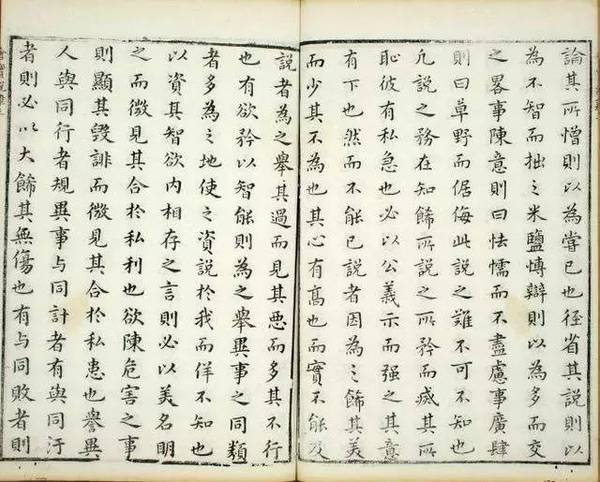 論其所憎則以為嘗已也徑省其説則以
為不智而拙之米鹽博辯則以為多而交
之畧事陳意則曰怯懦而不盡慮事廣肆
則曰草野而倨侮此説之難不可不知也
凢説之务在知飾所説之所矜而滅其所
恥彼有私急也必以公義示而强之其意
有下也然而不能已説者因為之飾其美
而少其不為也其心有髙也而實不能及
説者為之舉其過而見其惡而多其不行
也有欲矜以智能則為之舉異事之同類
者多為之地使之資説於我而佯不知也
以資其智欲内相存之言則必以美名明
之而微見其合於私利也欲陳危害之事
則顯其毀誹而微見其合於私患也譽異
人與同行者規異事与同計者有與同汙
者則必以大飾其無傷也有与同敗者則